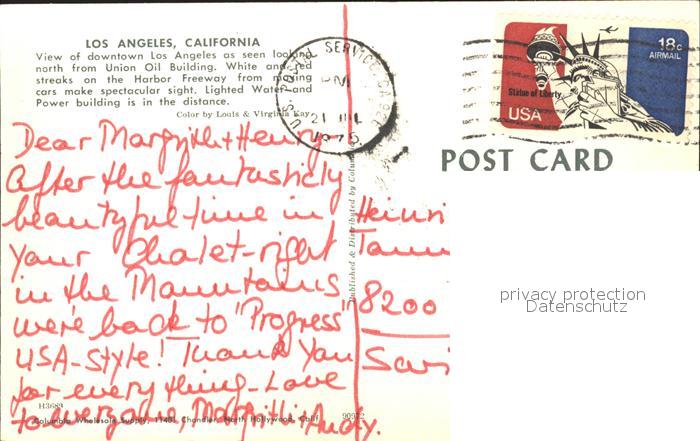 LOS ANGELES, CALIFORNIA
View of downtown Los Angeles as seen looking
north from Union Oil Building. White and red
streaks on the Harbor Freeway from moving
cars make spectacular sight. Lighted Water and
Power building is in the distance.
Color by Louis & Virginia Kay
Dear Margrith + Henry
After the fantasticly
beautyful time in
your Chalet-right
in the Mountains
we're back to "Progress"
USA-Style! Thank You
for everything-Love
to everyone, Margrith Andy.
H3689
Columbia Wholesale Supply, 11401 Chandler, North Hollywood, Calif.
Published & Distributed by Colum
U.S. POSTAL SERVICE
PM
21 JUL
1975
18c
AIRMAIL
Statue of Liberty
USA
POST CARD
Heinri
Tann
8200
privacy protection
Datenschutz